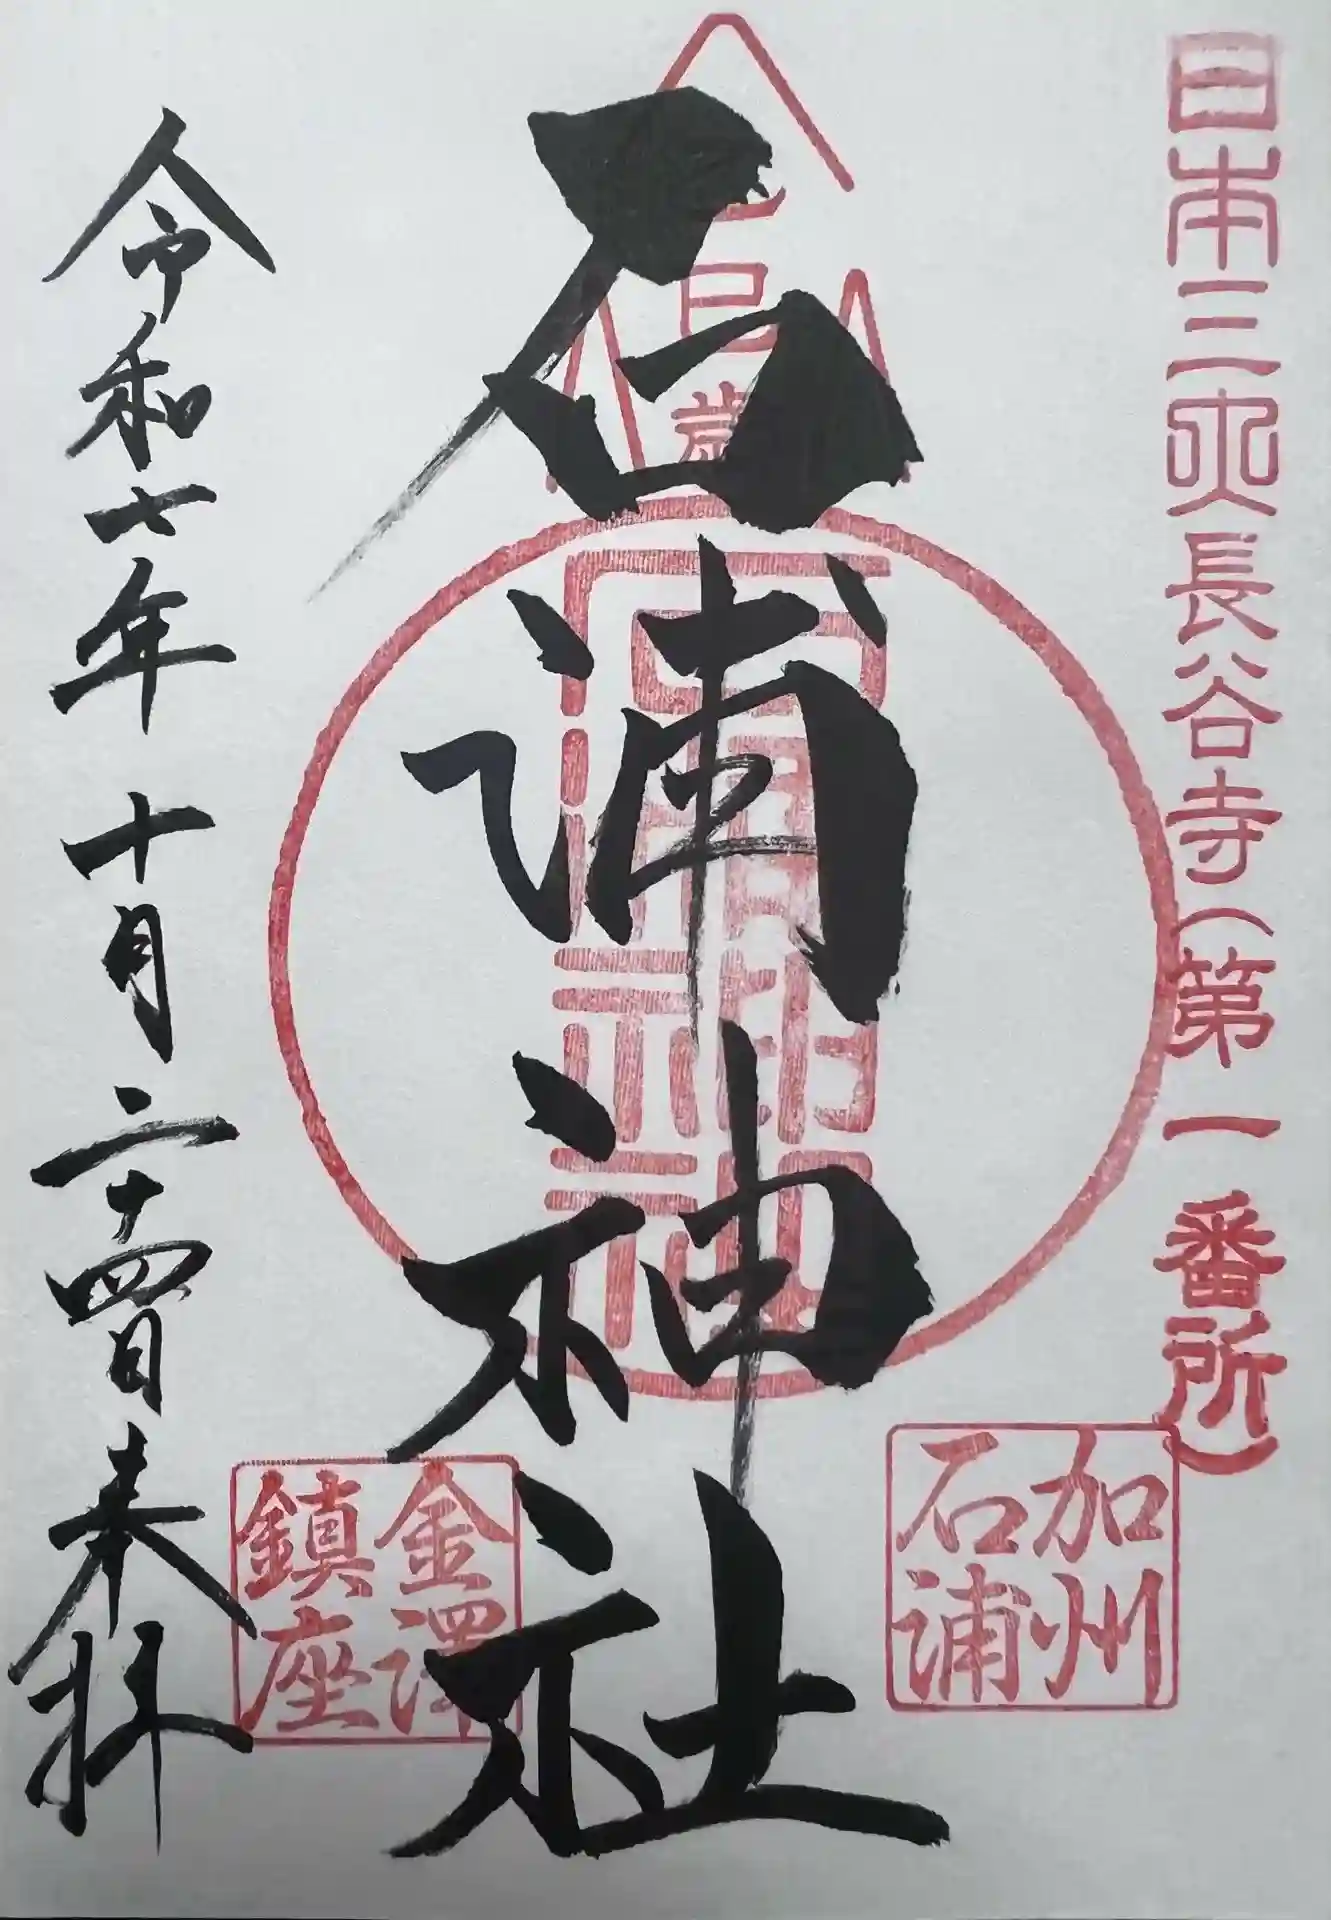 日本三大長谷寺(第一番所)
加州
石浦
巳歳
石浦神社
石浦神社
金澤
鎮座
令和七年十月二十四日奉拝